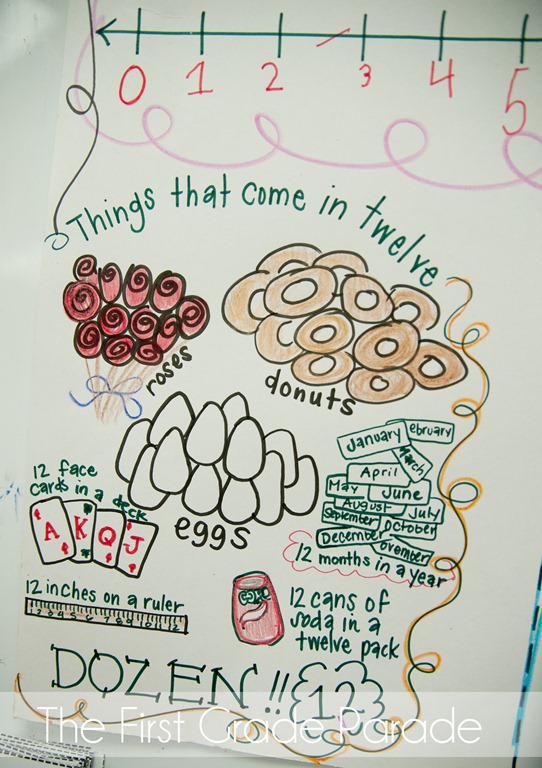 0 1 2 3 4 5
Things that come in twelve
roses
donuts
eggs
January
ebruary
March
April
May
June
August
July
September
October
December
ovember
12 months in a year
12 face
cards in a deck
A K Q J
12 inches on a ruler
1 2 3 4 5 6 7 8 9 10 11 12
Coke
12 cans of
soda in a
twelve pack
DOZEN!! 12
The First Grade Parade